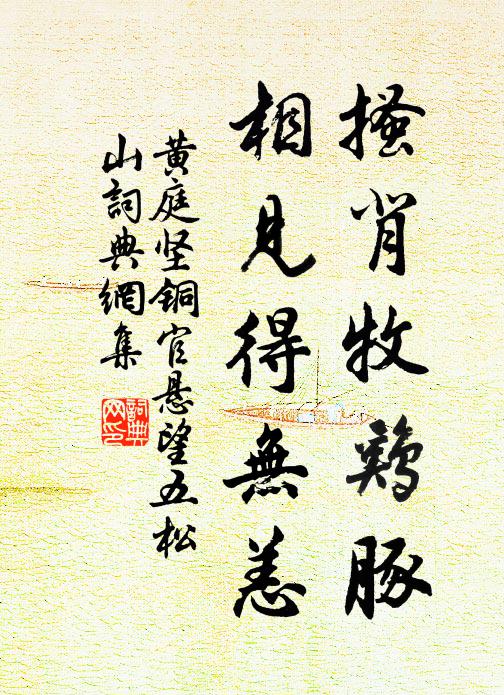 搔背牧鷄豚
相見得無恙
黄庭坚銅官悬望五松
山詞典網集
詞典
网印